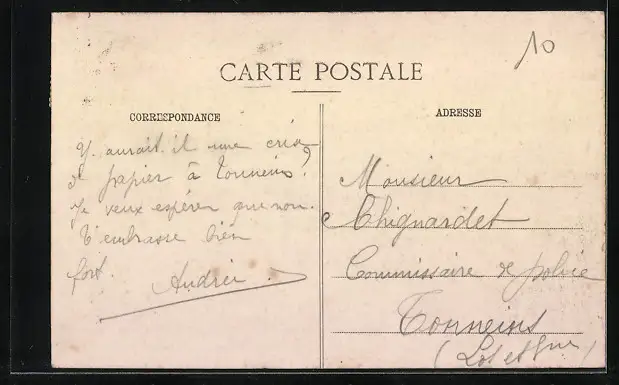 10
CARTE POSTALE
CORRESPONDANCE
Y. aurait il une crise
de papier à Tonneins?
Je veux espérer que non.
T'embrasse bien
fort.
Andrée
ADRESSE
Monsieur
Chignardet
Commissaire de police
Tonneins
(Lot et Gne)